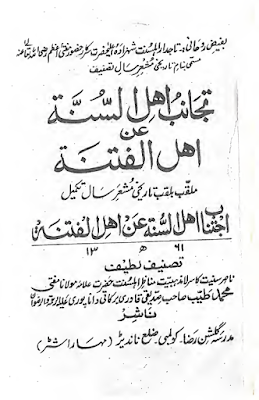 بفیض روحانی: تاجدار اہلسنت شہزادۂ اعلیٰحضرت سرکار حضور مفتی اعظم رضی اللہ تعالیٰ عنہ
مسمّٰی بنام تاریخی مُشعِر سال تصنیف
تجانب اھل السُّنَّة
عن
اھل الفتنة
ملقب بلقب تاریخی مُشعر سال تکمیل
اجتناب اھل السنة عن اھل الفتنة
۱۳ ھ ۶۱
تصنیف لطیف
ناصر سنیت کاسر لامذہبیت حضرت علامہ مولانا مفتی
محمد طیب صاحب صدیقی قادری برکاتی داناپوری علیہ الرحمۃ والرضوان
ناشر
مدرسہ گلشن رضا۔ کولمبی۔ ضلع ناندیڑ (مہاراشٹر)